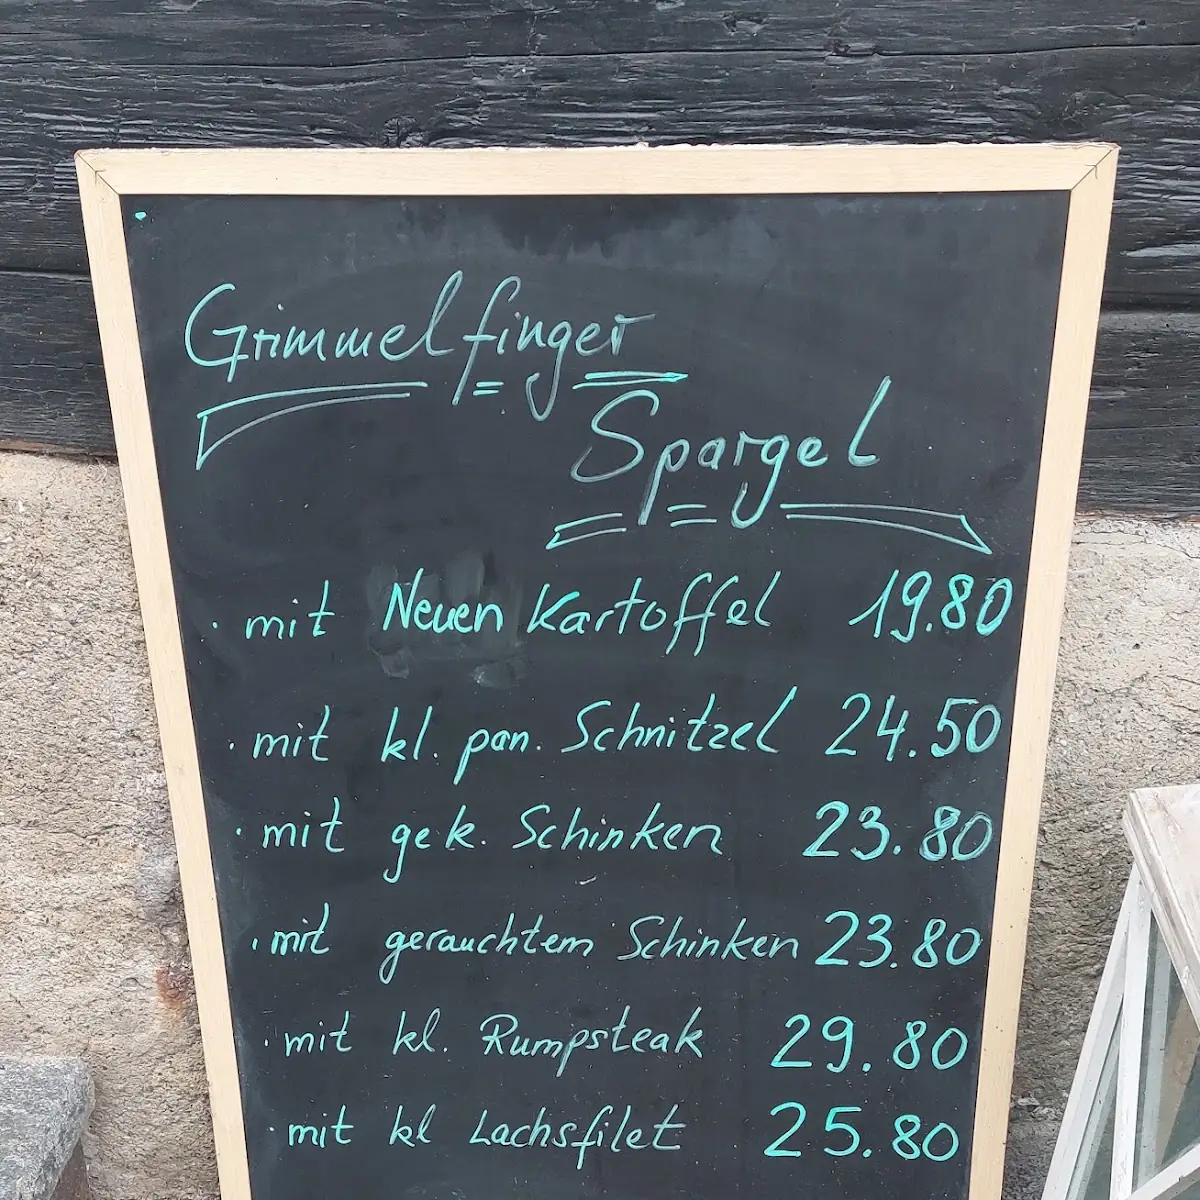 Grimmelfinger
Spargel
· mit Neuen Kartoffel 19.80
· mit kl. pan. Schnitzel 24.50
· mit gek. Schinken 23.80
· mit gerauchtem Schinken 23.80
· mit kl. Rumpsteak 29.80
· mit kl Lachsfilet 25.80